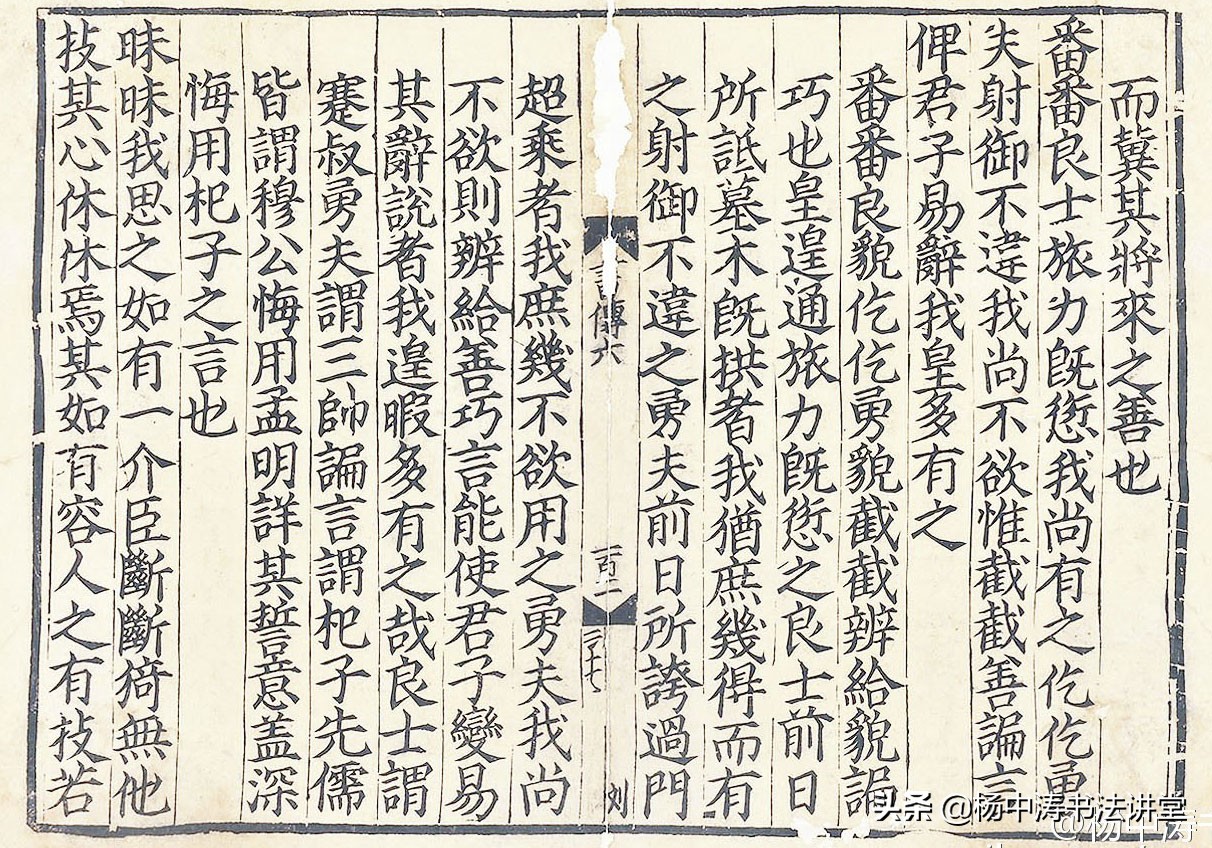 而冀其將來之善也
番番良士旅力旣愆我尚有之仡仡勇
夫射御不違我尚不欲惟截截善諞言
俾君子易辭我皇多有之
番番良貌仡仡勇貌截截辨給貌諞
巧也皇遑通旅力旣愆之良士前日
所詆墓木旣拱者我猶庶幾得而有
之射御不違之勇夫前日所誇過門
書傳六
一百二
刘
超乘者我庶幾不欲用之勇夫我尚
不欲則辨給善巧言能使君子變易
其辭說者我遑暇多有之哉良士謂
蹇叔勇夫謂三帥諞言謂杞子先儒
皆謂穆公悔用孟明詳其誓意盖深
悔用杞子之言也
昧昧我思之如有一介臣斷斷猗無他
技其心休休焉其如有容人之有技若
头条 @杨中涛书法讲堂
@杨中涛